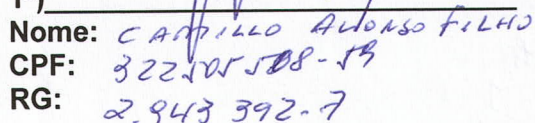 Nome: CAMILLO AFFONSO FILHO
CPF: 322505508-59
RG: 2.943 392-7